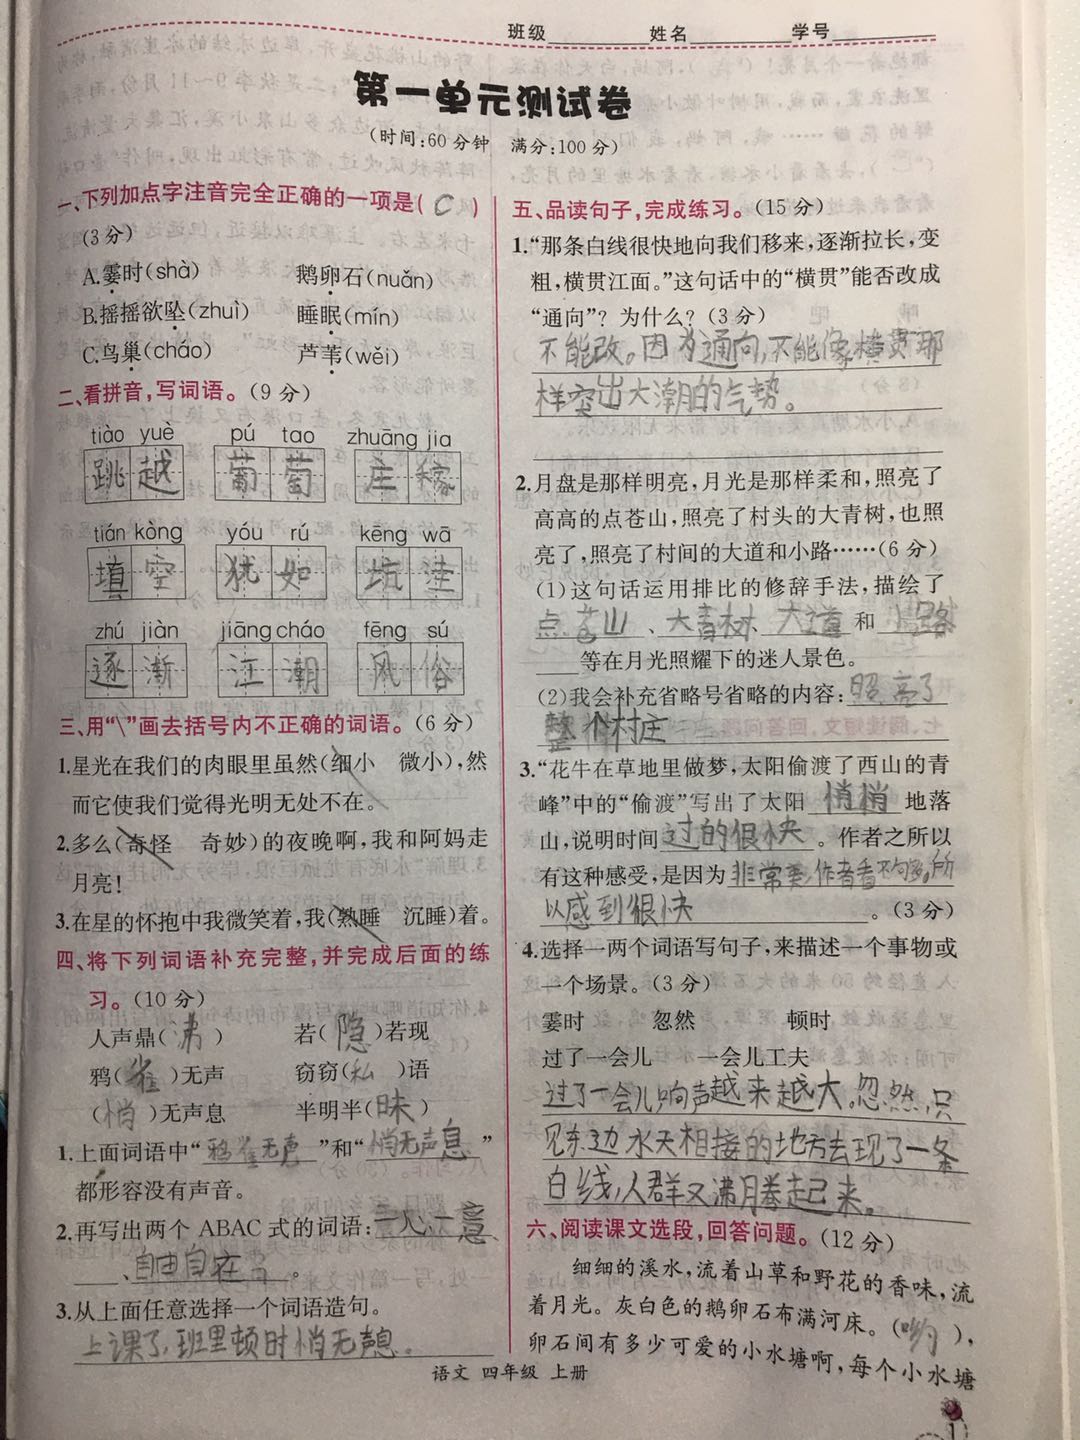 班级________姓名________学号________
第一单元测试卷
(时间:60分钟 满分:100分)
一、下列加点字注音完全正确的一项是( C )
(3分)
A.霎时(shà) 鹅卵石(nuǎn)
B.摇摇欲坠(zhuì) 睡眠(mín)
C.鸟巢(cháo) 芦苇(wěi)
二、看拼音,写词语。(9分)
tiào yuè pú tao zhuāng jia
跳越 葡萄 庄稼
tián kòng yóu rú kēng wā
填空 犹如 坑洼
zhú jiàn jiāng cháo fēng sú
逐渐 江潮 风俗
三、用“\”画去括号内不正确的词语。(6分)
1.星光在我们的肉眼里虽然(细小 微小),然
而它使我们觉得光明无处不在。
2.多么(奇怪 奇妙)的夜晚啊,我和阿妈走
月亮!
3.在星的怀抱中我微笑着,我(熟睡 沉睡)着。
四、将下列词语补充完整,并完成后面的练
习。(10分)
人声鼎(沸) 若(隐)若现
鸦(雀)无声 窃窃(私)语
(悄)无声息 半明半(昧)
1.上面词语中“鸦雀无声”和“悄无声息”
都形容没有声音。
2.再写出两个ABAC式的词语:一心一意
、自由自在。
3.从上面任意选择一个词语造句。
上课了,班里顿时悄无声息。
五、品读句子,完成练习。(15分)
1.“那条白线很快地向我们移来,逐渐拉长,变
粗,横贯江面。”这句话中的“横贯”能否改成
“通向”?为什么?(3分)
不能改。因为通向,不能像横贯那
样突出大潮的气势。
2.月盘是那样明亮,月光是那样柔和,照亮了
高高的点苍山,照亮了村头的大青树,也照
亮了,照亮了村间的大道和小路……(6分)
(1)这句话运用排比的修辞手法,描绘了
点苍山、大青树、大道和小路
等在月光照耀下的迷人景色。
(2)我会补充省略号省略的内容:照亮了
整个村庄
3.“花牛在草地里做梦,太阳偷渡了西山的青
峰”中的“偷渡”写出了太阳 悄悄 地落
山,说明时间过的很快。作者之所以
有这种感受,是因为非常美,作者看不够,所
以感到很快。(3分)
4.选择一两个词语写句子,来描述一个事物或
一个场景。(3分)
霎时 忽然 顿时
过了一会儿 一会儿工夫
过了一会儿,响声越来越大。忽然,只
见东边水天相接的地方去现了一条
白线,人群又沸腾起来。
六、阅读课文选段,回答问题。(12分)
细细的溪水,流着山草和野花的香味,流
着月光。灰白色的鹅卵石布满河床。(哟),
卵石间有多少可爱的小水塘啊,每个小水塘
语文 四年级 上册
1